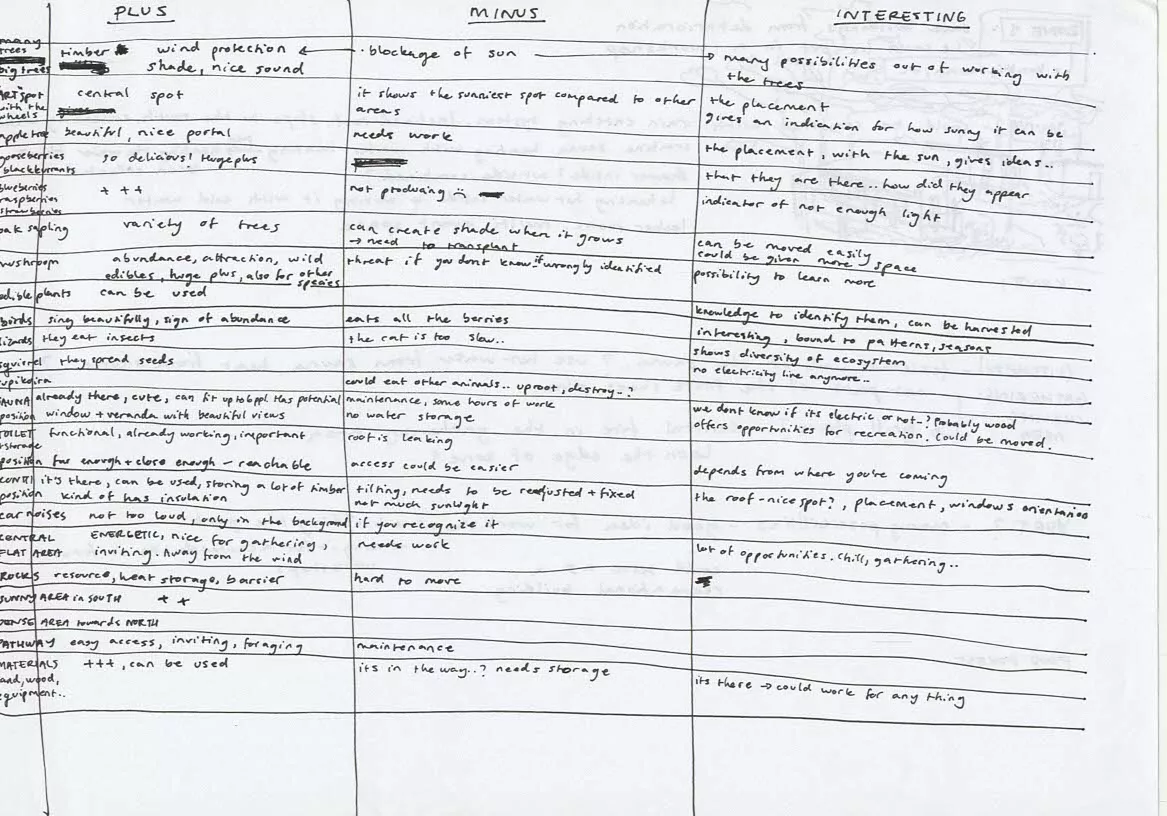 PLUS MINUS INTERESTING
many
trees timber wind protection ← · blockage of sun → many possibilities out of working with
big trees shade, nice sound the trees
ART spot central spot it shows the sunniest spot compared to other the placement
with the areas gives an indication for how sunny it can be
wheels
apple tree beautiful, nice portal needs work the placement, with the sun, gives ideas..
gooseberries so delicious! Huge plus that they are there.. how did they appear
blackcurrants
blueberries + ++ not producing indicator of not enough light
raspberries
strawberries
oak sapling variety of trees can create shade when it grows can be moved easily
→ need to transplant could be given more space
mushroom abundance, attraction, wild threat if you dont know if wrongly identified possibility to learn more
edibles, huge plus, also for other
species
edible plants can be used knowledge to identify them, can be harvested
birds sing beautifully, sign of abundance eats all the berries interesting, bound to patterns, seasons
lizards they eat insects the cat is too slow.. shows diversity of ecosystem
squirrel they spread seeds no electricity line anymore..
could eat other animals.. uproot, destroy..?
SAUNA already there, cute, can fit up to 6ppl Has potential maintenance, some hours of work we dont know if its electric or not..? Probably wood
position window + veranda with beautiful views no water storage offers opportunities for recreation. Could be moved.
TOILET functional, already working, important roof is leaking
+storage
position far enough + close enough - reachable access could be easier depends from where you're coming
CONTI it's there, can be used, storing a lot of timber tilting, needs to be readjusted + fixed the roof - nice spot?, placement, windows orientation
position kind of has insulation not much sunlight
car noises not too loud, only in the background if you recognize it
CENTRAL ENERGETIC, nice for gathering, needs work lot of opportunities. Chill, gathering..
FLAT AREA inviting. Away from the wind
ROCKS resource, heat storage, barrier hard to move
SUNNY AREA in SOUTH + +
DENSE AREA towards NORTH
PATHWAY easy access, inviting, foraging maintenance
MATERIALS +++, can be used its in the way..? needs storage its there → could work for any thing
sand, wood,
equipment..